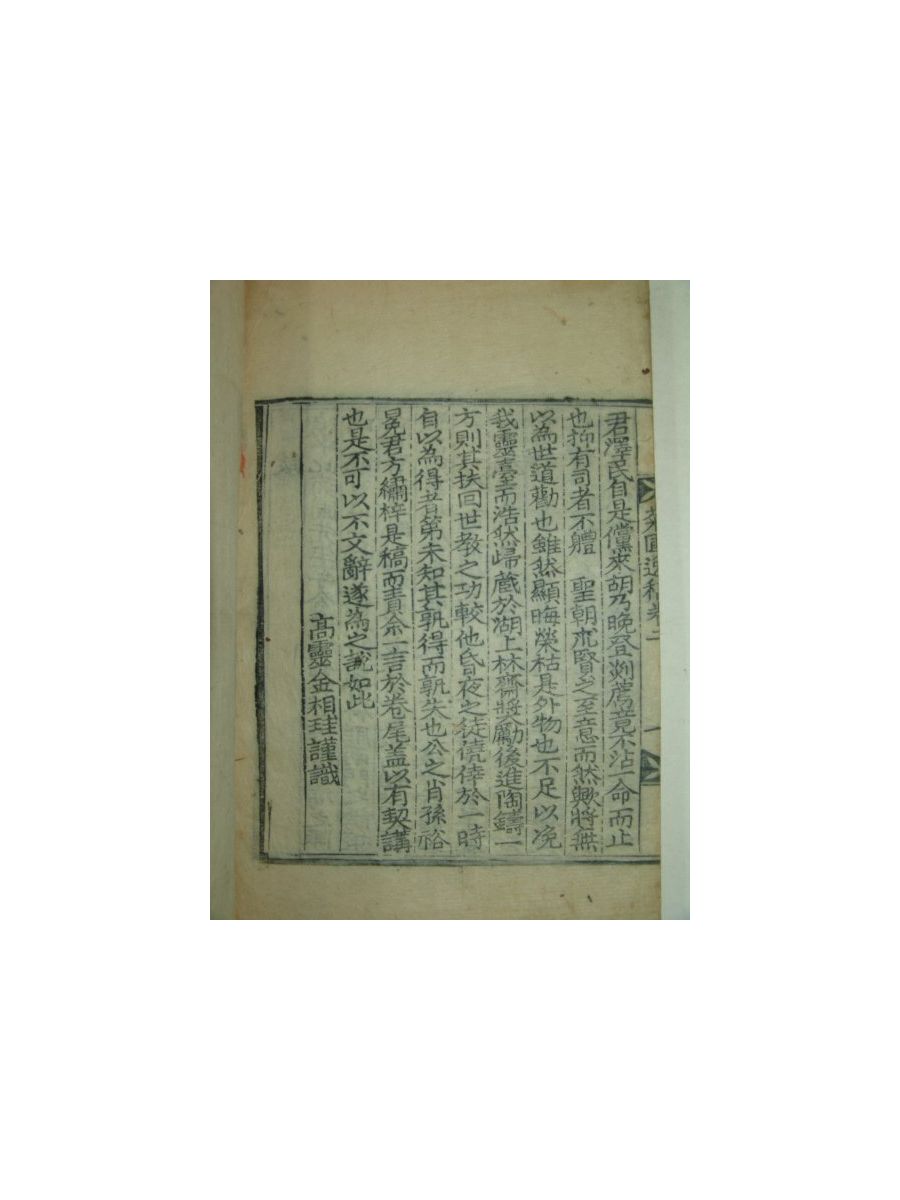 君澤民自是儻來胡乃晚登剡薦竟不沾一命而止
也抑有司者不體 聖朝求賢之至意而然歟將無
以為世道勸也雖然顯晦榮枯是外物也不足以凂
我靈臺而浩然歸藏於湖上林齋獎勵後進陶鑄一
方則其扶回世教之功較他昏夜之徒僥倖於一時
自以為得者第未知其孰得而孰失也公之肖孫裕
冕君方繡梓是稿而責余一言於卷尾盖以有契講
也是不可以不文辭遂為之說如此
高靈金相珪謹識